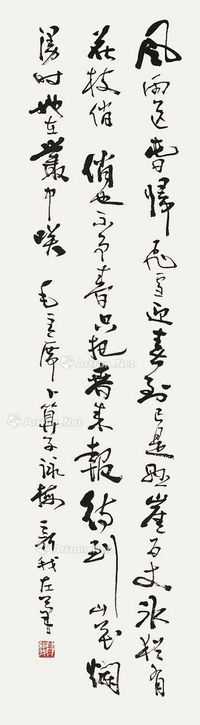 風雨送春歸飛雪迎春到已是懸崖百丈冰猶有
花枝俏俏也不爭春只把春來報待到山花爛
漫時她在叢中咲 毛主席卜算子詠梅 新我左筆
Artron.Net